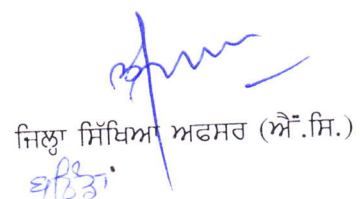 ਜਿਲ੍ਹਾ ਸਿੱਖਿਆ ਅਫਸਰ (ਐੱ.ਸਿ.)
ਬਠਿੰਡਾ